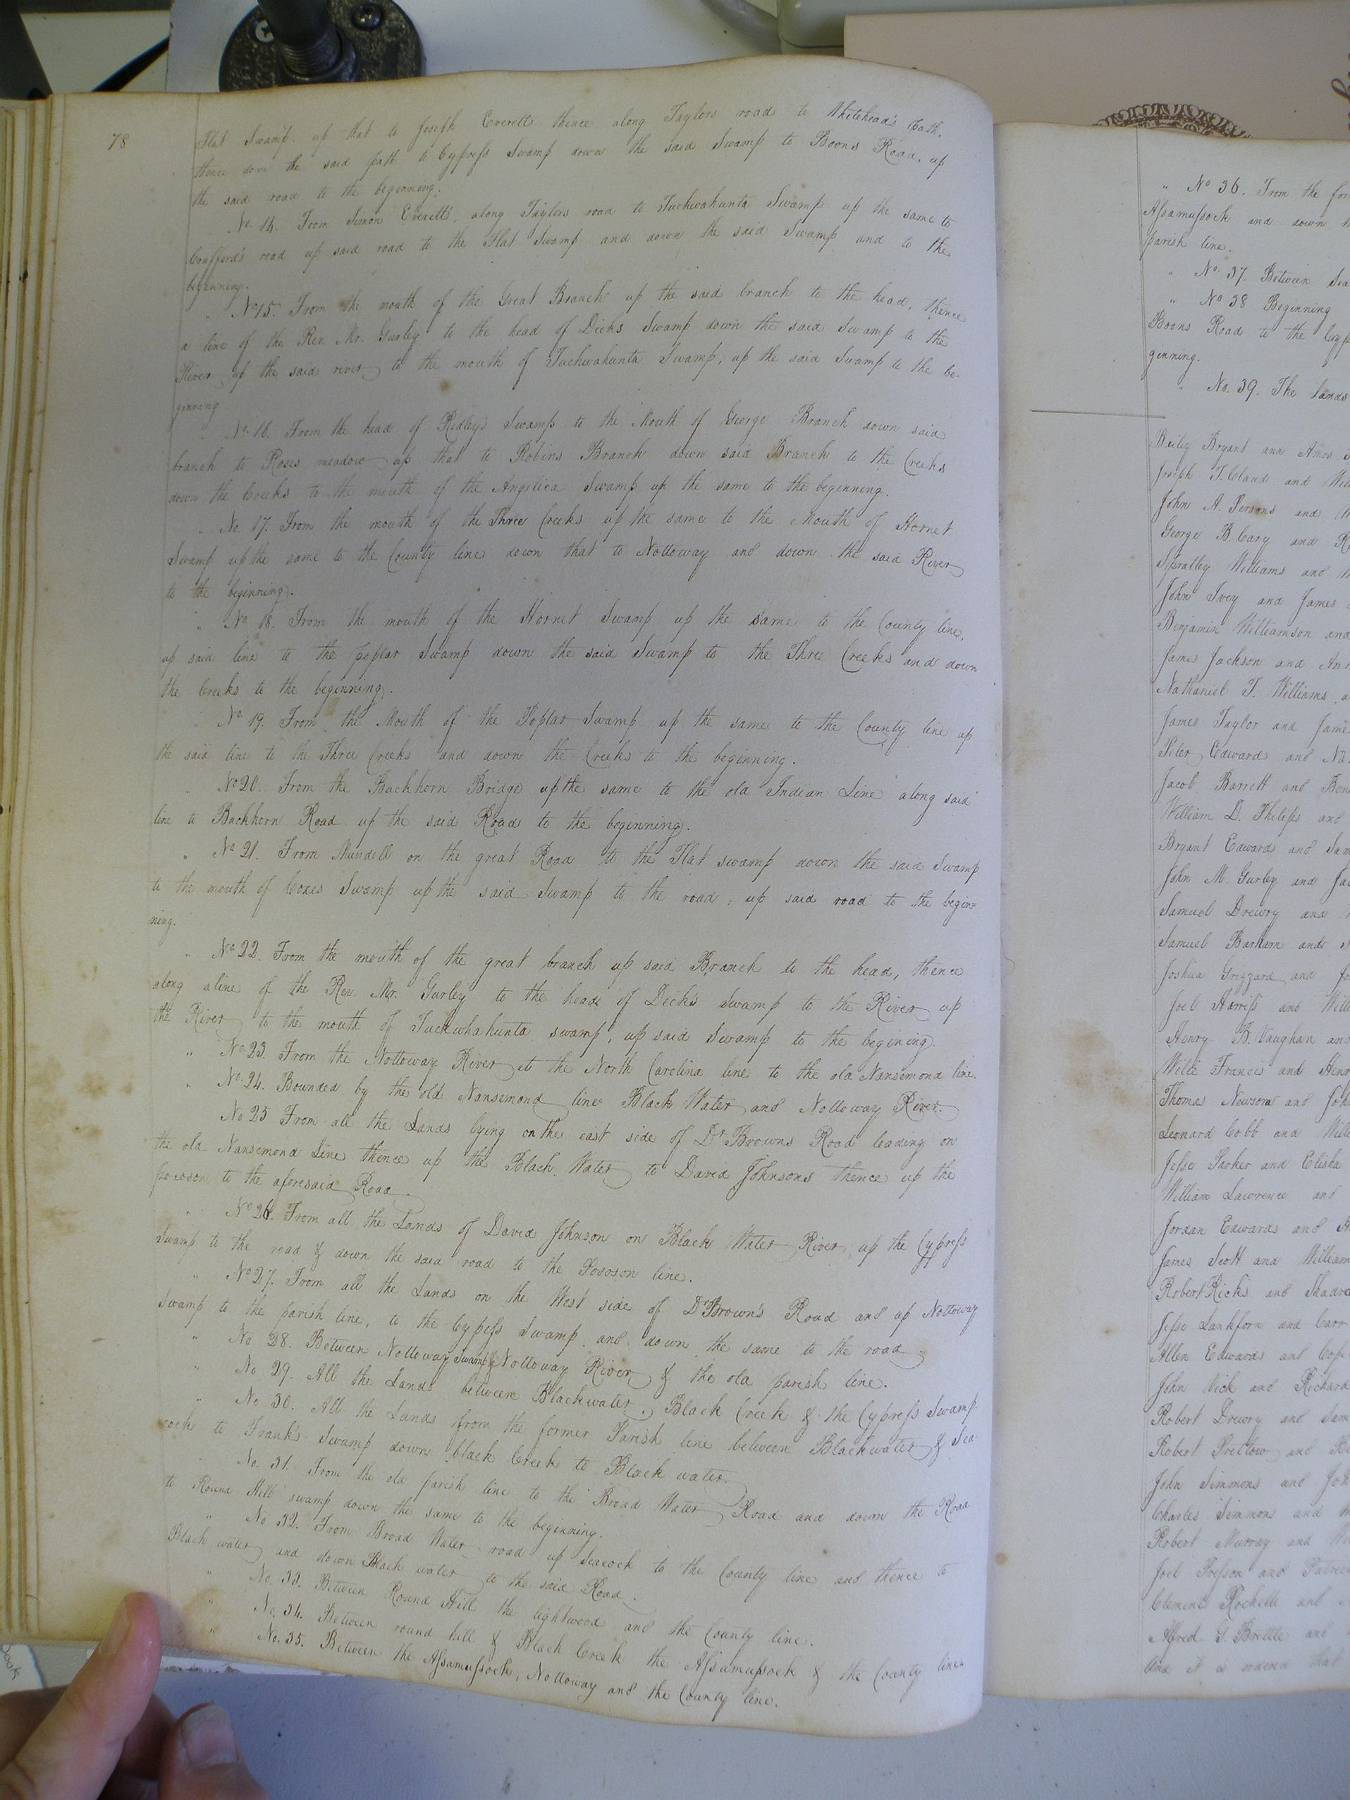 78
Flat Swamp. up that to Joseph Everetts thence along Taylors road to Whitehead's Path.
thence down the said path to Cypress Swamp down the said Swamp to Boons Road. up
the said road to the beginning.
No 14. From Simon Everett's, along Taylors road to Tuckwahunta Swamp up the same to
Crafford's road up said road to the Flat Swamp and down the said Swamp and to the
beginning.
" No 15. From the mouth of the Great Branch up the said branch to the head, thence
a line of the Rev. Mr. Gurley to the head of Dicks Swamp down the said Swamp to the
River up the said river to the mouth of Tuckwahunta Swamp, up the said Swamp to the be-
ginning
" No. 16. From the head of Ridley's Swamp to the Mouth of George Branch down said
branch to Roses meadow up that to Robins Branch down said Branch to the Creeks
down the Creeks to the mouth of the Angelica Swamp up the same to the beginning.
" No. 17. From the mouth of the Three Creeks up the same to the Mouth of Hornet
Swamp up the same to the County line down that to Nottoway and down the said River
to the beginning.
" No 18. From the mouth of the Hornet Swamp up the same to the County line,
up said line to the poplar Swamp down the said Swamp to the Three Creeks and down
the Creeks to the beginning.
" No 19. From the Mouth of the Poplar Swamp up the same to the County line up
the said line to the Three Creeks and down the Creeks to the beginning.
" No 20. From the Buckhorn Bridge up the same to the old Indian Line along said
line to Buckhorn Road up the said Road to the beginning.
" No 21. From Mundell on the great Road to the Flat swamp down the said Swamp
to the mouth of Coxes Swamp up the said Swamp to the road, up said road to the begin=
ning.
" No 22. From the mouth of the great branch up said Branch to the head, thence
along a line of the Rev Mr. Gurley to the head of Deck's Swamp to the River up
the River to the mouth of Tuckwhahunta swamp, up said Swamp to the begining.
" No 23. From the Nottoway River to the North Carolina line to the old Nansemond line.
" No 24. Bounded by the old Nansemond line Black Water and Nottoway River.
No 25 From all the Lands lying on the east side of Dr. Browns Road leading on
the old Nansemond Line thence up the Black Water to David Johnsons thence up the
pocoson to the aforesaid Road.
" No 26. From all the Lands of David Johnson on Black Water River up the Cypress
Swamp to the road & down the said road to the Pocoson line.
" No 27. From all the Lands on the West side of Dr Brown's Road and up Nottoway
Swamp to the parish line, to the Cypress Swamp and down the same to the road.
" No 28. Between Nottoway Swamp & Nottoway River & the old parish line.
" No 29. All the Lands between Blackwater, Black Creek & the Cypress Swamp
" No 30. All the Lands from the former Parish line between Blackwater & Sea
cock to Frank's Swamp down black Creek to Black water.
" No. 31. From the old parish line to the Broad Water Road and down the Road
to Round Hill swamp down the same to the beginning.
" No 32. From Broad Water road up Seacock to the County line and thence to
Black water and down Black water to the said Road.
" No. 33. Between Round Hill the lightwood and the County line.
" No. 34. Between round hill & Black Creek the Assamussock & the County line.
" No. 35. Between the Assamussock, Nottoway and the County line.
" No 36. From the for
Assamussock and down
parish line.
" No. 37. Between Sea
" No 38 Beginning
Boons Road to the Cyp
ginning.
" No. 39. The lands
Bryant and Amos
Joseph T. Cland and Wil
John A. Persons and
George B. Cary and R
Spratley Williams and
John Ivey and James
Benjamin Williamson and
James Jackson and
Nathaniel T. Williams
James Taylor and James
Peter Edwards and
Jacob Barrett and Ben
William D. Phillips and
Bryant Edwards and Sam
John M. Gurley and Ja
Samuel Drewry and
Samuel Barham and
Joshua Grizzard and Jo
Joel Harriss and Will
Henry B. Vaughan and
Willie Francis and Henr
Thomas Newsom and Joh
Leonard Cobb and Will
Jesse Parker and Elisha
William Lawrence and
Jordan Edwards and
James Scott and William
Robert Ricks and Shadra
Jesse Lankford and Carr
Allen Edwards and
John Vick and Richard
Robert Drewry and Sam
Robert Pretlow and
John Simmons and Joh
Charles Simmons and
Robert Murray and
Joel and Patric
Clement Rochelle and
Alfred G. Brittle and
And it is ordered that